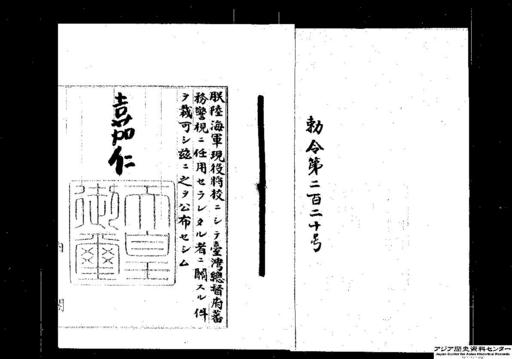 勅令第二百二十号
朕陸海軍現役将校ニシテ臺灣総督府蕃
務警視ニ任用セラレタル者ニ關スル件
ヲ裁可シ茲ニ之ヲ公布セシム
嘉仁
天皇
御璽
内閣
アジア歴史資料センター
Japan Center for Asian Historical Records